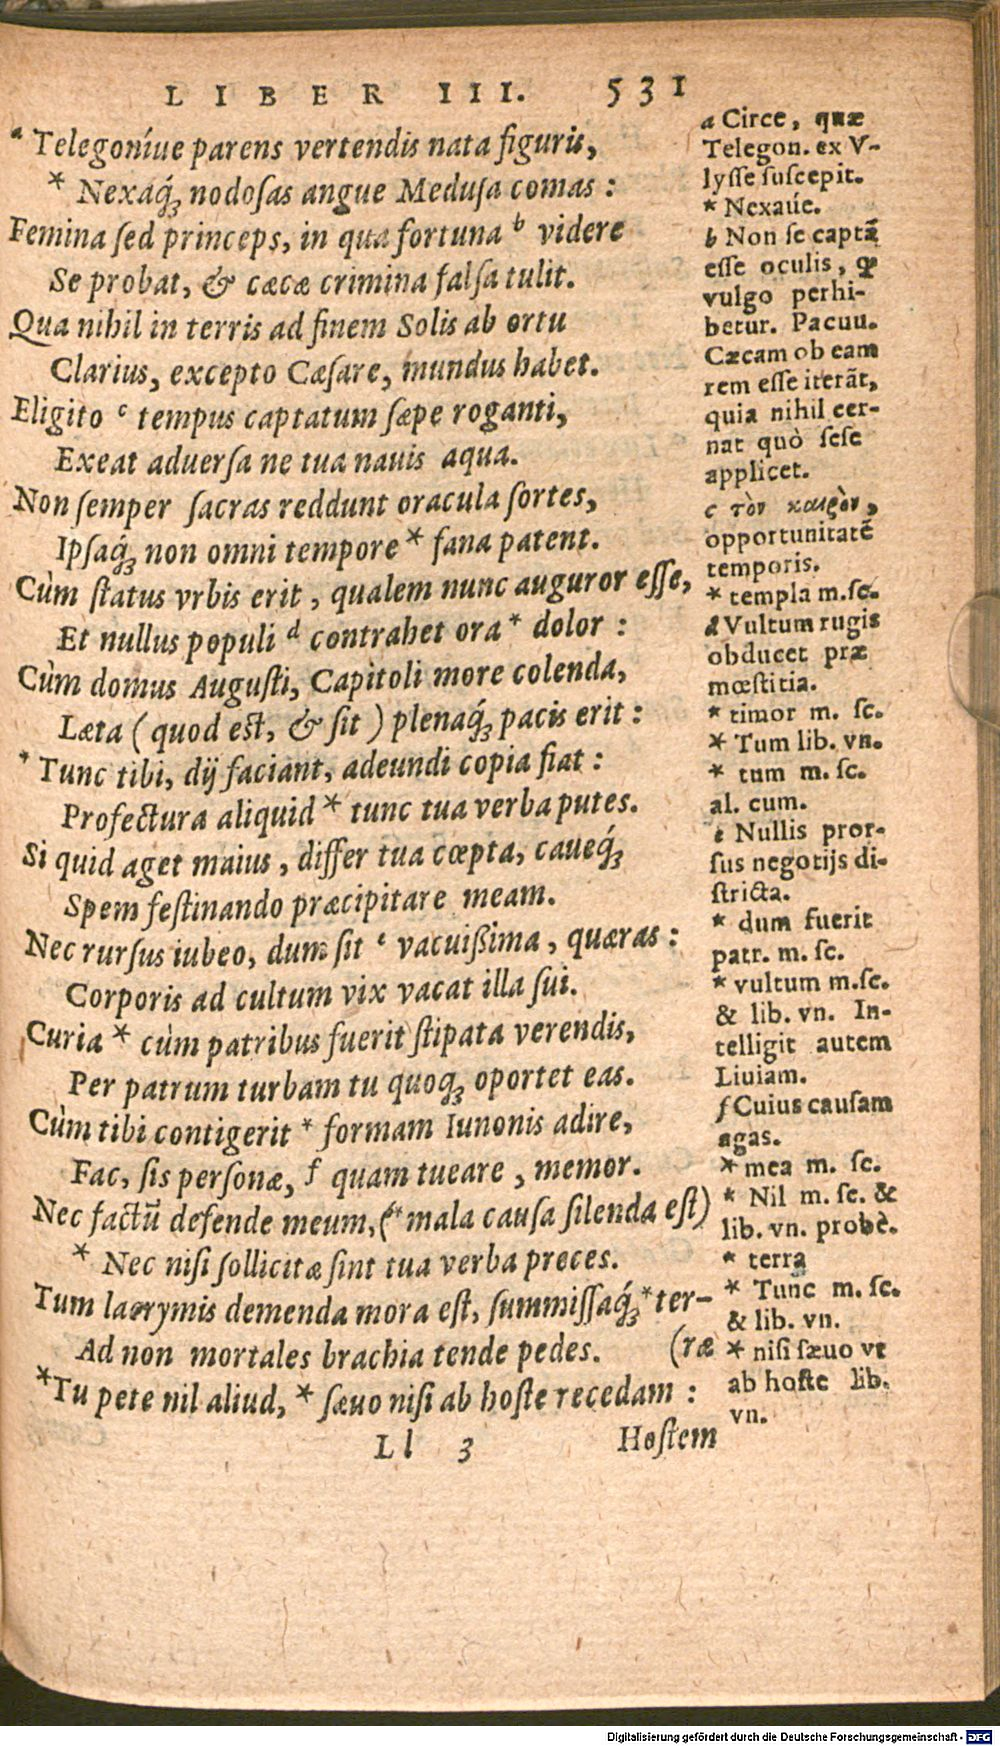 LIBER III. 531
a Telegoníue parens vertendis nata figuris,
* Nexáq́; nodoſas angue Meduſa comas :
Femina ſed princeps, in qua fortuna b videre
Se probat, & cæcæ crimina falſa tulit.
Qua nihil in terris ad finem Solis ab ortu
Clarius, excepto Cæſare, mundus habet.
Eligito c tempus captatum ſæpe roganti,
Exeat aduerſa ne tua nauis aqua.
Non ſemper ſacras reddunt oracula ſortes,
Ipſaq́; non omni tempore * fana patent.
Cùm ſtatus vrbis erit, qualem nunc auguror eſſe,
Et nullus populi d contrahet ora * dolor :
Cùm domus Auguſti, Capitoli more colenda,
Læta ( quod eſt, & ſit ) plenaq́; pacis erit :
* Tunc tibi, dij faciant, adeundi copia fiat :
Profectura aliquid * tunc tua verba putes.
Si quid aget maius, differ tua cœpta, caueq́;
Spem feſtinando præcipitare meam.
Nec rurſus iubeo, dum ſit e vacuißima, quæras :
Corporis ad cultum vix vacat illa ſui.
Curia * cùm patribus fuerit ſtipata verendis,
Per patrum turbam tu quoq; oportet eas.
Cùm tibi contigerit * formam Iunonis adire,
Fac, ſis perſonæ, f quam tueare, memor.
Nec factũ defende meum, (* mala cauſa ſilenda eſt)
* Nec niſi ſollicitæ ſint tua verba preces.
Tum lacrymis demenda mora eſt, ſummiſſaq́; * ter-
Ad non mortales brachia tende pedes. (ræ
* Tu pete nil aliud, * ſæuo niſi ab hoſte recedam :
Ll 3 Hoſtem
a Circe, quæ
Telegon. ex V-
lyſſe ſuſcepit.
* Nexaúe.
b Non ſe captã
eſſe oculis, ꝙ
vulgo perhi-
betur. Pacuu.
Cæcam ob eam
rem eſſe iterãt,
quia nihil cer-
nat quò ſeſe
applicet.
c τὸν καιρὸν,
opportunitatẽ
temporis.
* templa m. ſc.
d Vultum rugis
obducet præ
mœſtitia.
* timor m. ſc.
* Tum lib. vn.
* tum m. ſc.
al. cum.
e Nullis pror-
ſus negotijs di-
ſtricta.
* dum fuerit
patr. m. ſc.
* vultum m. ſc.
& lib. vn. In-
telligit autem
Liuiam.
f Cuius cauſam
agas.
* mea m. ſc.
* Nil m. ſc. &
lib. vn. probè.
* terra
* Tunc m. ſc.
& lib. vn.
* niſi ſæuo vt
ab hoſte lib.
vn.
Digitalisierung gefördert durch die Deutsche Forschungsgemeinschaft - DFG